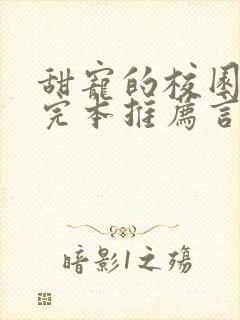 甜寵的校园
完本推薦言
暗影1之殇